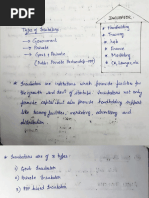 Types of Incubators
→ Government
→ Private
→ Govt + Private
(Public Private Partnership -PPP)
INCUBATOR
Handholding
Training
Lab
Finance
Marketing
CA, Lawyer, etc
Incubators are institutions which promote facilities for
the growth and devt of startups. Incubators not only
promote capital but also provide handholding support
like training, marketing, advertising and
distribution.
Incubators are of 3 types:
1) Govt Incubator
2) Private Incubator
3) PPP based Incubator